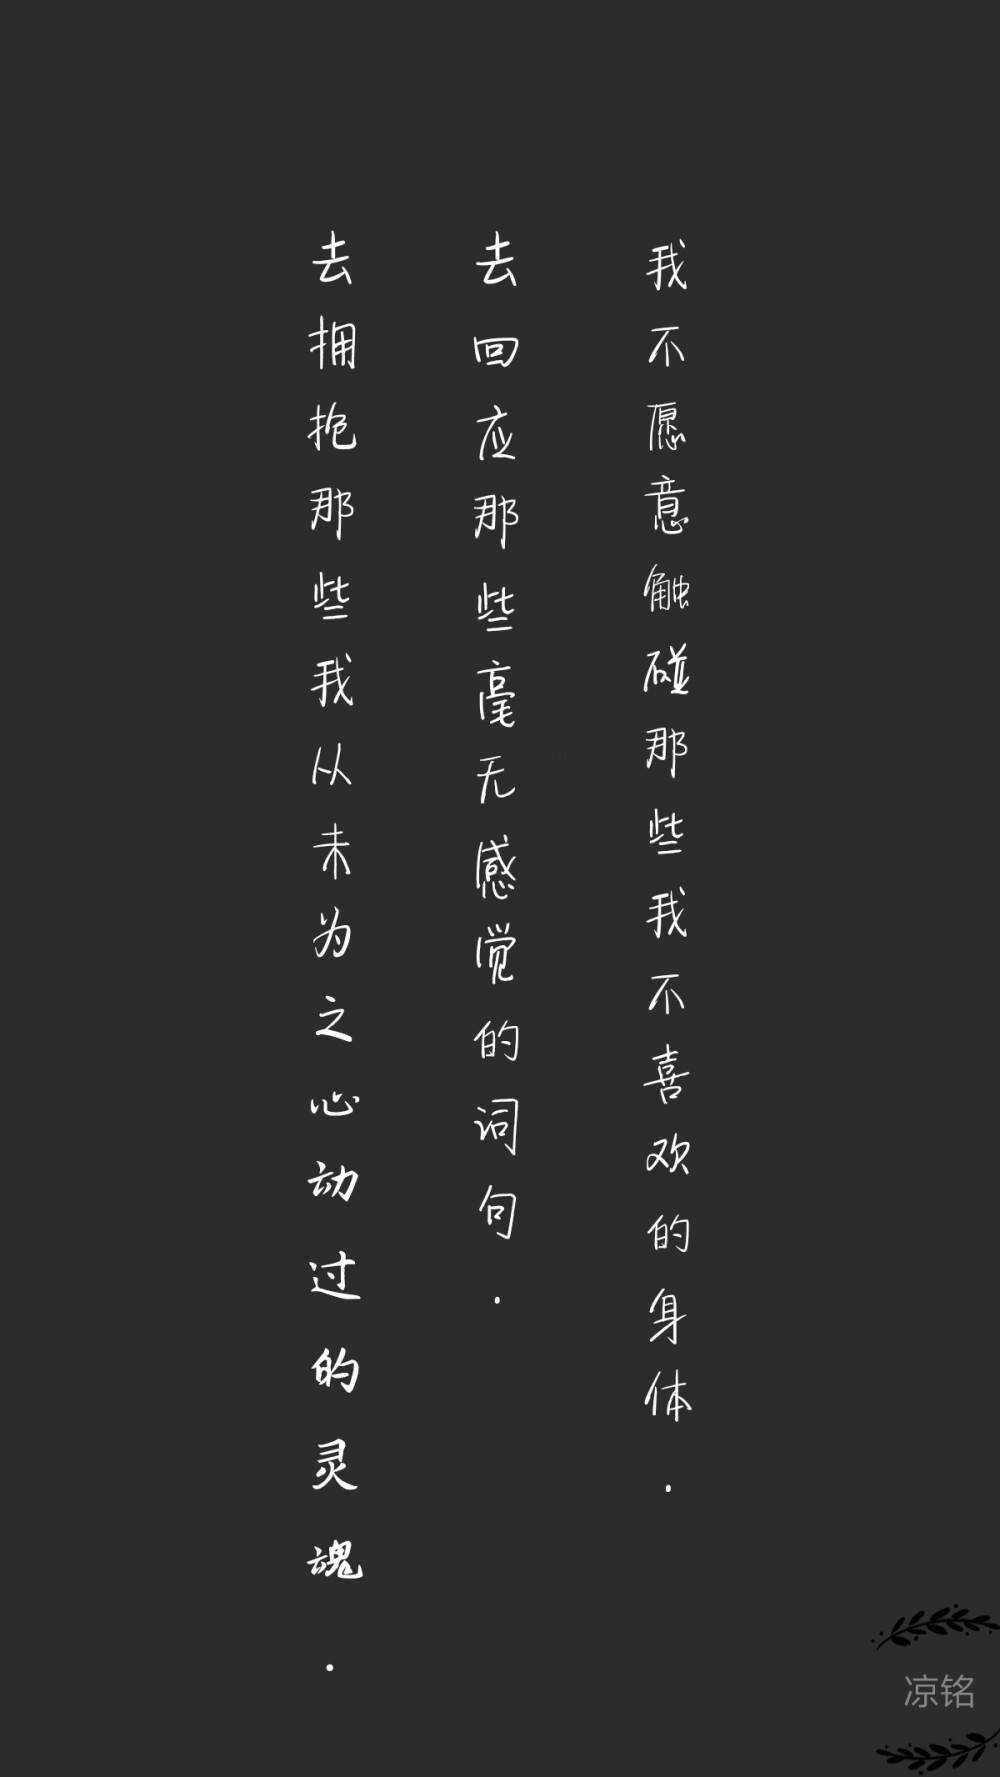 我不愿意触碰那些我不喜欢的身体.
去回应那些毫无感觉的词句.
去拥抱那些我从未为之心动过的灵魂.
凉铭